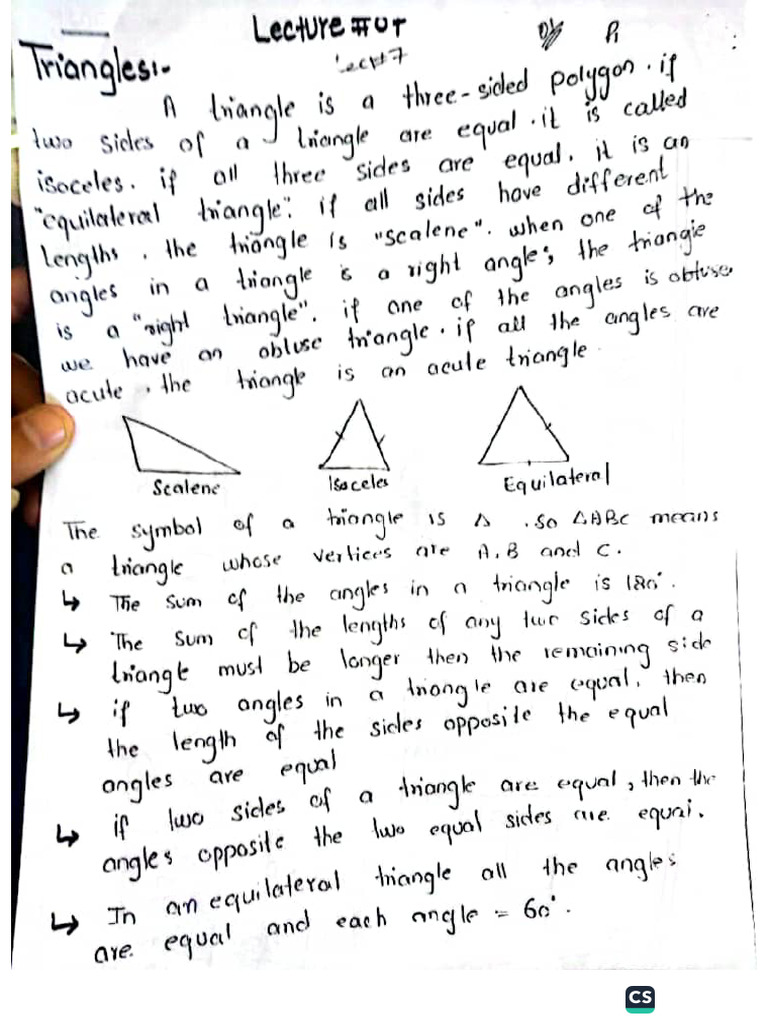 Lecture # 07
Lect#7
Triangles:-
A triangle is a three-sided polygon. if
two sides of a triangle are equal. it is called
isoceles. if all three sides are equal. it is an
"equilateral triangle". if all sides have different
lengths, the triangle is "scalene". when one of the
angles in a triangle is a right angle, the triangle
is a "right triangle". if one of the angles is obtuse
we have an obtuse triangle. if all the angles are
acute, the triangle is an acute triangle.
Scalene Isoceles Equilateral
The symbol of a triangle is Δ. So ΔABC means
a triangle whose vertices are A, B and C.
↳ The sum of the angles in a triangle is 180°.
↳ The sum of the lengths of any two sides of a
triangle must be longer then the remaining side
↳ if two angles in a triangle are equal, then
the length of the sides opposite the equal
angles are equal
↳ if two sides of a triangle are equal, then the
angles opposite the two equal sides are equal.
↳ In an equilateral triangle all the angles
are equal and each angle = 60°.
CS